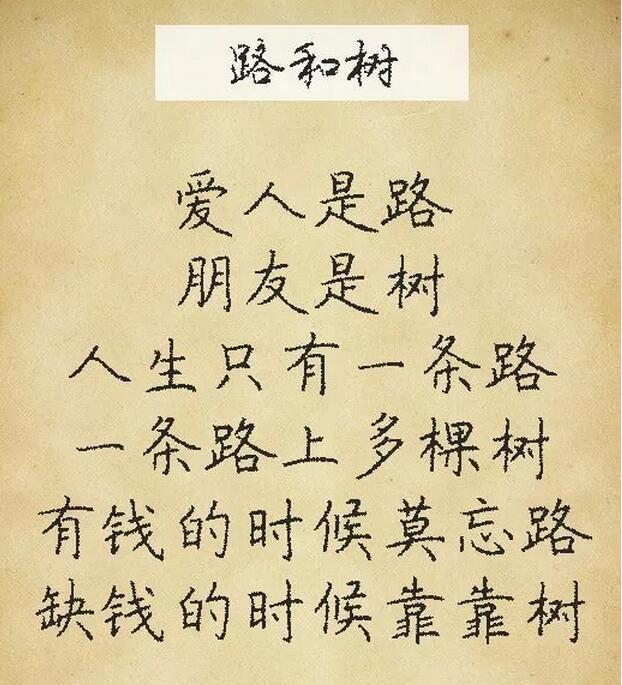 路和树
爱人是路
朋友是树
人生只有一条路
一条路上多棵树
有钱的时候莫忘路
缺钱的时候靠靠树